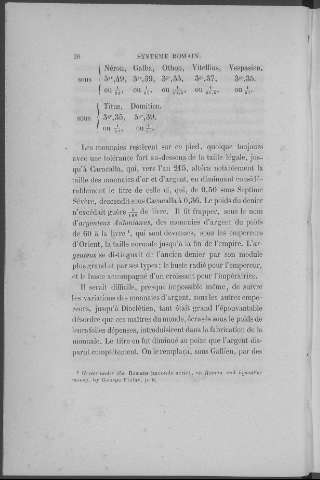 20 SYSTÈME ROMAIN.
Néron, Galba, Othon, Vitellius, Vespasien,
sous 3gr,59, 3gr,39, 3gr,35, 3gr,37, 3gr,35.
ou ou ou ou ou
Titus, Domitien.
sous 3gr,35, 3gr,39.
ou ou
Les monnaies restèrent sur ce pied, quoique toujours
avec une tolérance fort au-dessous de la taille légale, jus-
qu'à Caracalla, qui, vers l'an 215, altéra notablement la
taille des monnaies d'or et d'argent, en diminuant considé-
rablement le titre de celle-ci, qui, de 0,50 sous Septime
Sévère, descendit sous Caracalla à 0,36. Le poids du denier
n'excédait guère de livre. Il fit frapper, sous le nom
d'argenteus Antoninianus, des monnaies d'argent du poids
de 60 à la livre ¹, qui sont devenues, sous les empereurs
d'Orient, la taille normale jusqu'à la fin de l'empire. L'ar-
genteus se distinguait de l'ancien denier par son module
plus grand et par ses types: le buste radié pour l'empereur,
et le buste accompagné d'un croissant pour l'impératrice.
Il serait difficile, presque impossible même, de suivre
les variations des monnaies d'argent, sous les autres empe-
reurs, jusqu'à Dioclétien, tant était grand l'épouvantable
désordre que ces maîtres du monde, écrasés sous le poids de
leurs folles dépenses, introduisirent dans la fabrication de la
monnaie. Le titre en fut diminué au point que l'argent dis-
parut complètement. On le remplaça, sous Gallien, par des
¹ Greece under the Romans
money, by George Finlay, p.